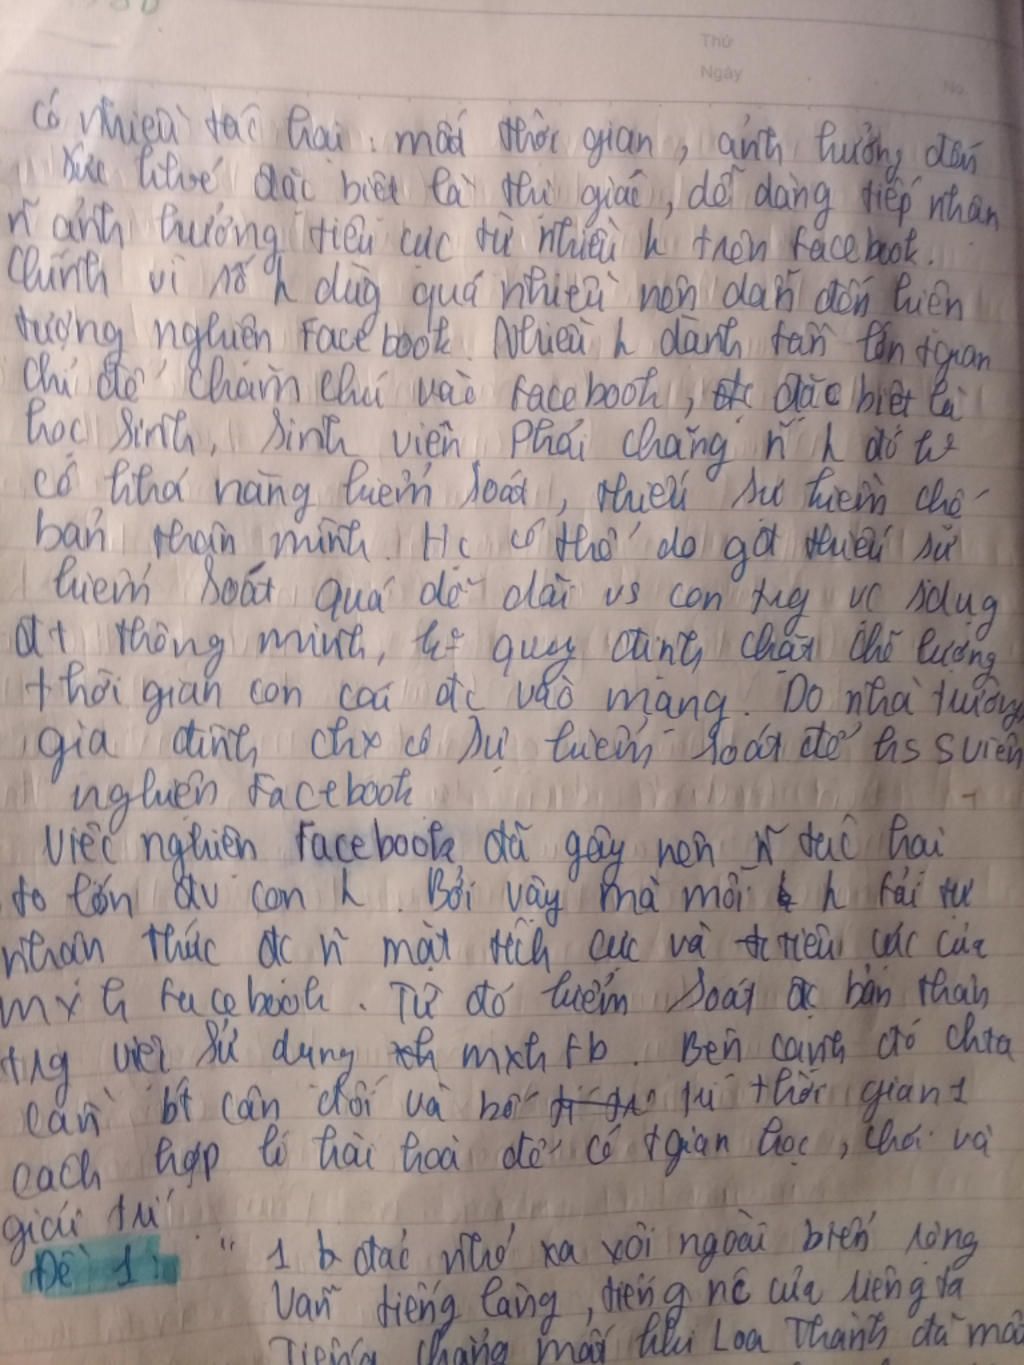 Thứ
Ngày
No.
có nhiều tác hại: mất thời gian, ảnh hưởng đến
sức khoẻ đặc biệt là thị giác, dễ dàng tiếp nhận
n~ ảnh hưởng tiêu cực từ nhiều h trên facebook.
Chính vì số h dùg quá nhiều nên dẫn đến hiện
tượng nghiện Facebook. Nhiều h dành tgian
chỉ để chăm chú vào facebook, đặc biệt là
học sinh, sinh viên. Phải chăng n~ h đó k
có khả năng kiểm soát, thiếu sự kiềm chế
bản thân mình. Hc có thể do gđ thiếu sự
kiểm soát quá dễ dãi vs con trg vc sdụg
đt thông minh, k quy định chặt chẽ lượng
thời gian con cái đc vào mạng. Do nhà trường
gia đình chx có sự kiểm soát để hs sviên
nghiện Facebook
Việc nghiện Facebook đã gây nên n~ tác hại
to lớn đv con h. Bởi vậy mà mỗi h fải tự
nhận thức đc n~ mặt tích cực và tiêu cực của
mxh Facebook. Từ đó kiểm soát đc bản thân
trg việc sử dụng mxh fb. Bên cạnh đó chta
cần bt cân đối và bố trí thời gian 1
cách hợp lí hài hoà để có tgian học, chơi và
giải trí
Đề 1: " 1 h đảo nhỏ xa xôi ngoài biển rộng
Vẫn tiếng làng, tiếng nc của riêng ta
Tiếng chẳng mất khi Loa Thành đã mất